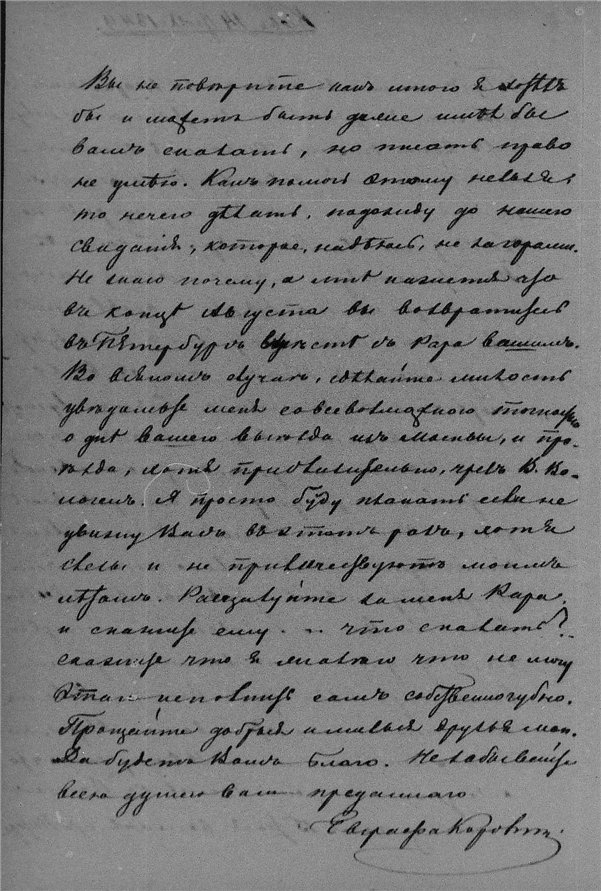 Вы не поверите какъ много я хотѣлъ
бы и можетъ быть даже имѣлъ бы
вамъ сказать, но писать право
не умѣю. Какъ помочь этому нельзя,
то нечего дѣлать, подожду до нашего
свиданія, которое, надѣюсь, не за горами.
Не знаю почему, а мнѣ кажется что
въ концѣ Августа вы возвратитесь
въ Петербургъ вмѣстѣ съ Кара вашимъ.
Во всякомъ случаѣ, сдѣлайте милость
увѣдомьте меня со всевозможною точностью
о днѣ вашего выѣзда изъ Москвы, и про-
ѣзда, хотя приблизительно, чрезъ В. Во-
лочекъ. Я просто буду плакать если не
увижу Васъ въ этотъ разъ, хотя
слезы и не приличествуютъ моимъ
лѣтамъ. Разцалуйте за меня Кара,
и скажите ему . . что сказать?..
скажите что я плачу что не могу
этаго исполнить самъ собственногубно.
Прощайте добрыя и милыя друзья мои.
Да будетъ Вамъ благо. Не забывайте
всею душею вамъ преданнаго